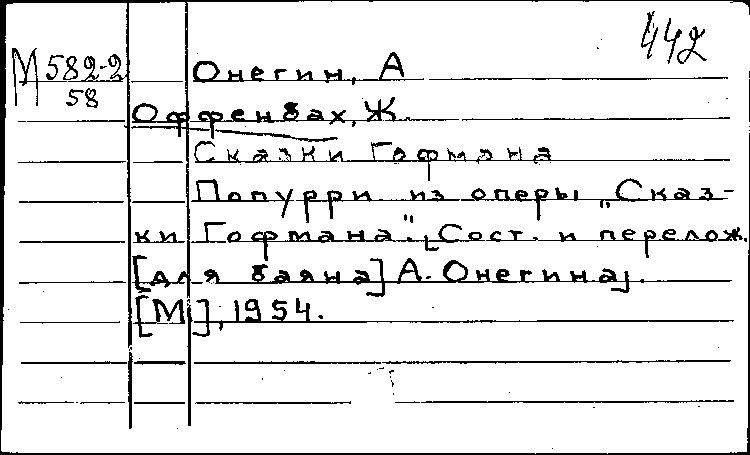 442
М 582-2
58
Онегин, А
Оффенбах, Ж.
Сказки Гофмана
Попурри из оперы „Сказ-
ки Гофмана". [Сост. и перелож.
[для баяна] А. Онегина].
[М], 1954.